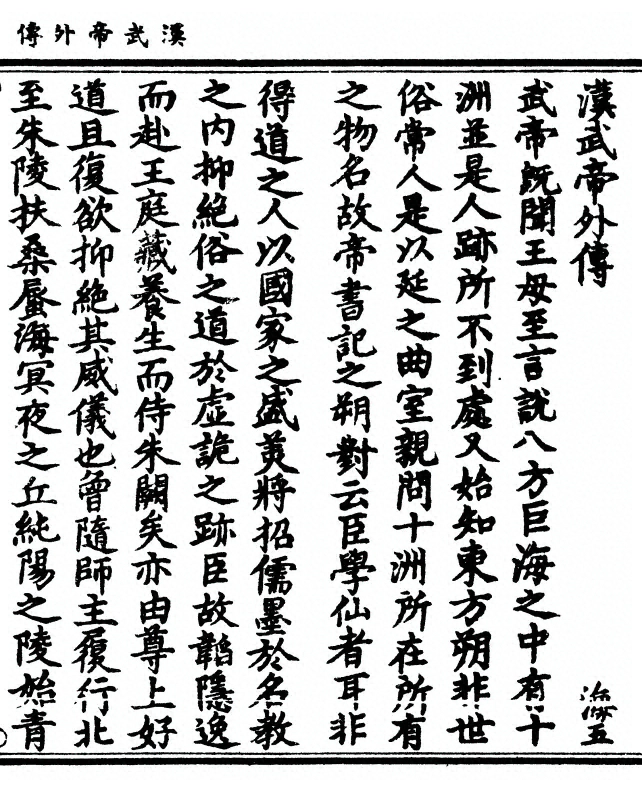 漢武帝外傳
漢武帝外傳 海五
武帝既聞王母至言說八方巨海之中有十
洲並是人跡所不到處又始知東方朔非世
俗常人是以延之曲室親問十洲所在所有
之物名故帝書記之朔對云臣學仙者耳非
得道之人以國家之盛美將招儒墨於名教
之内抑絕俗之道於虛詭之跡臣故韜隱逸
而赴王庭藏養生而侍朱闕矣亦由尊上好
道且復欲抑絕其威儀也曾隨師主履行北
至朱陵扶桑蜃海冥夜之丘純陽之陵始青